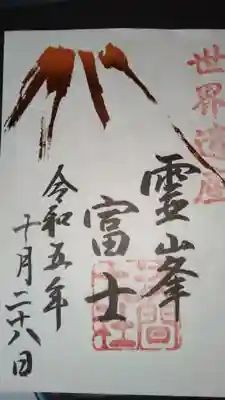 世界遺産
霊峰
富士
令和五年
十月二十八日